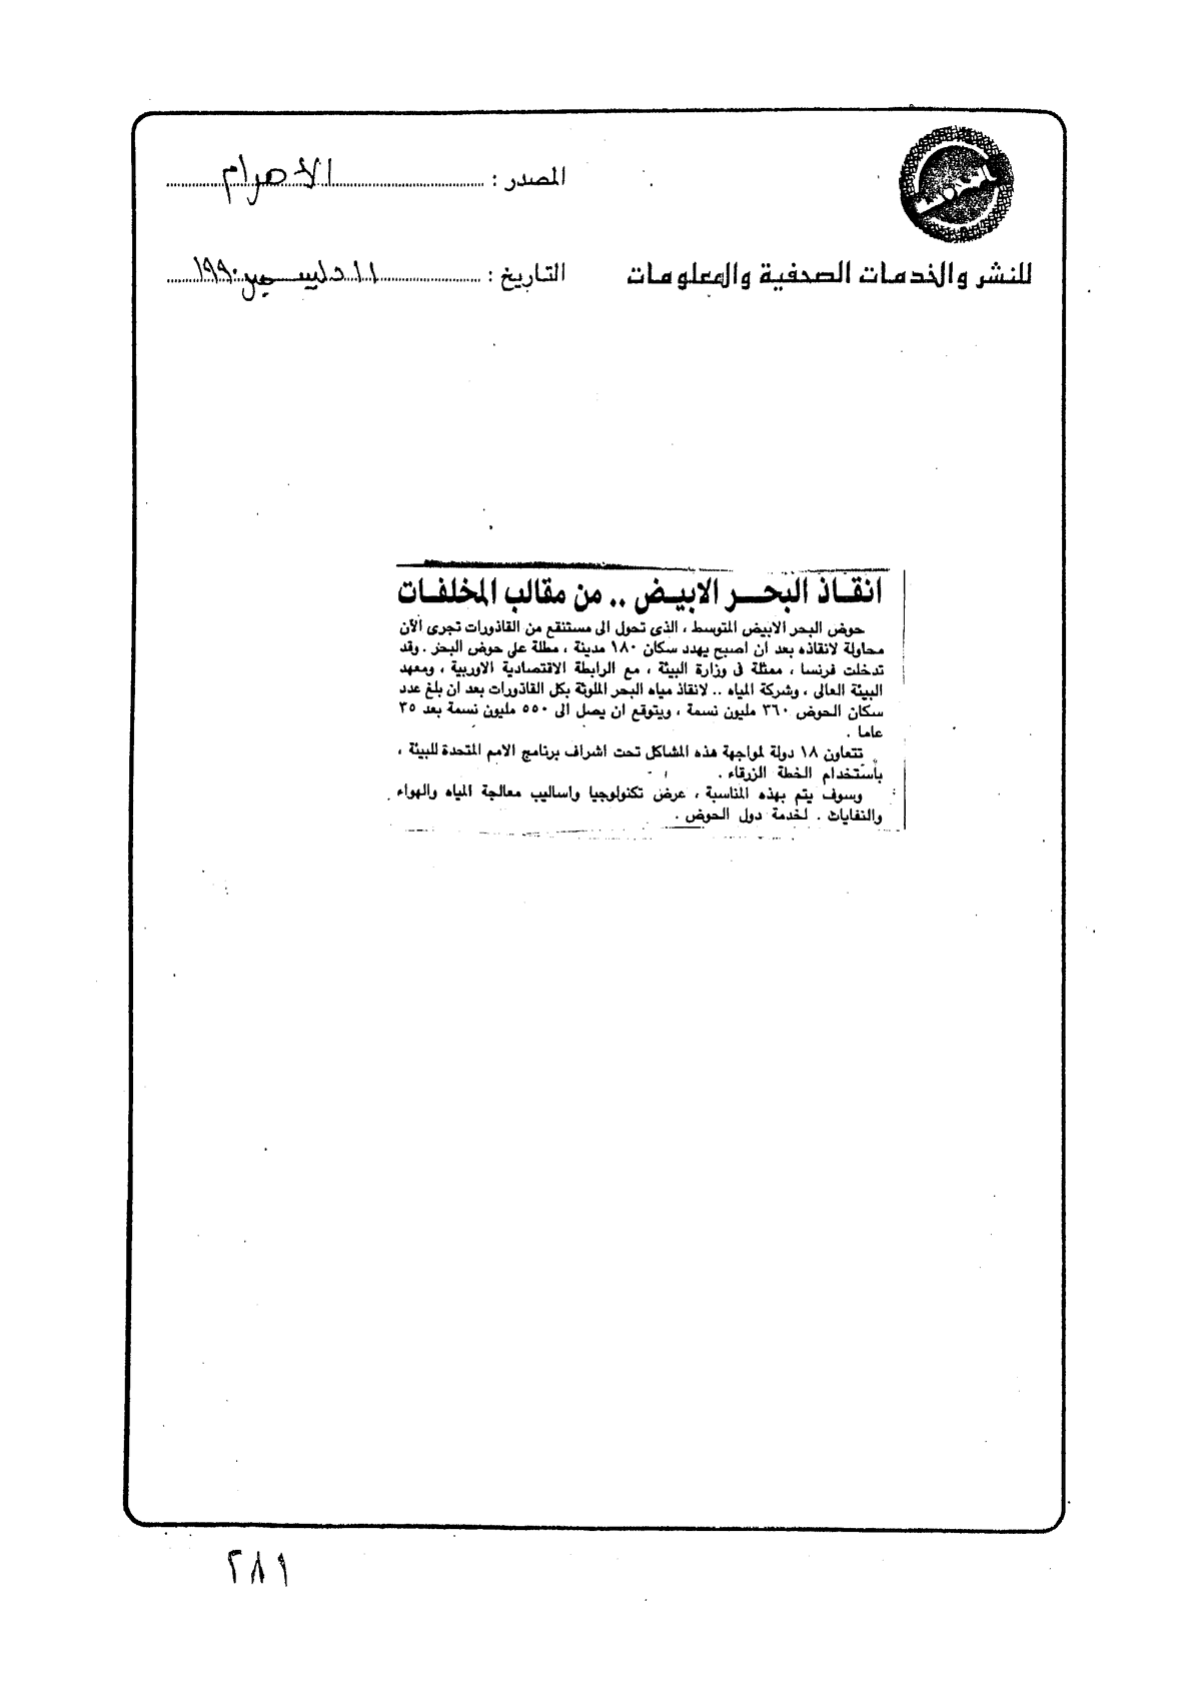 المصدر : الأهرام
للنشر والخدمات الصحفية والمعلومات
التاريخ : ١١ ديسمبر ١٩٩٠
انقـاذ البحـــر الابيـض .. من مقالب المخلفـات
حوض البحر الابيض المتوسط ، الذى تحول الى مستنقع من القاذورات تجرى الآن
محاولة لانقاذه بعد ان اصبح يهدد سكان ١٨٠ مدينة ، مطلة على حوض البحر . وقد
تدخلت فرنسا ، ممثلة فى وزارة البيئة ، مع الرابطة الاقتصادية الاوربية ، ومعهد
البيئة العالى ، وشركة المياه .. لانقاذ مياه البحر الملوثة بكل القاذورات بعد ان بلغ عدد
سكان الحوض ٣٦٠ مليون نسمة ، ويتوقع ان يصل الى ٥٥٠ مليون نسمة بعد ٣٥
عاما .
تتعاون ١٨ دولة لمواجهة هذه المشاكل تحت اشراف برنامج الامم المتحدة للبيئة ،
بأستخدام الخطة الزرقاء .
وسوف يتم بهذه المناسبة ، عرض تكنولوجيا واساليب معالجة المياه والهواء
والنفايات . لخدمة دول الحوض .
٢٨١